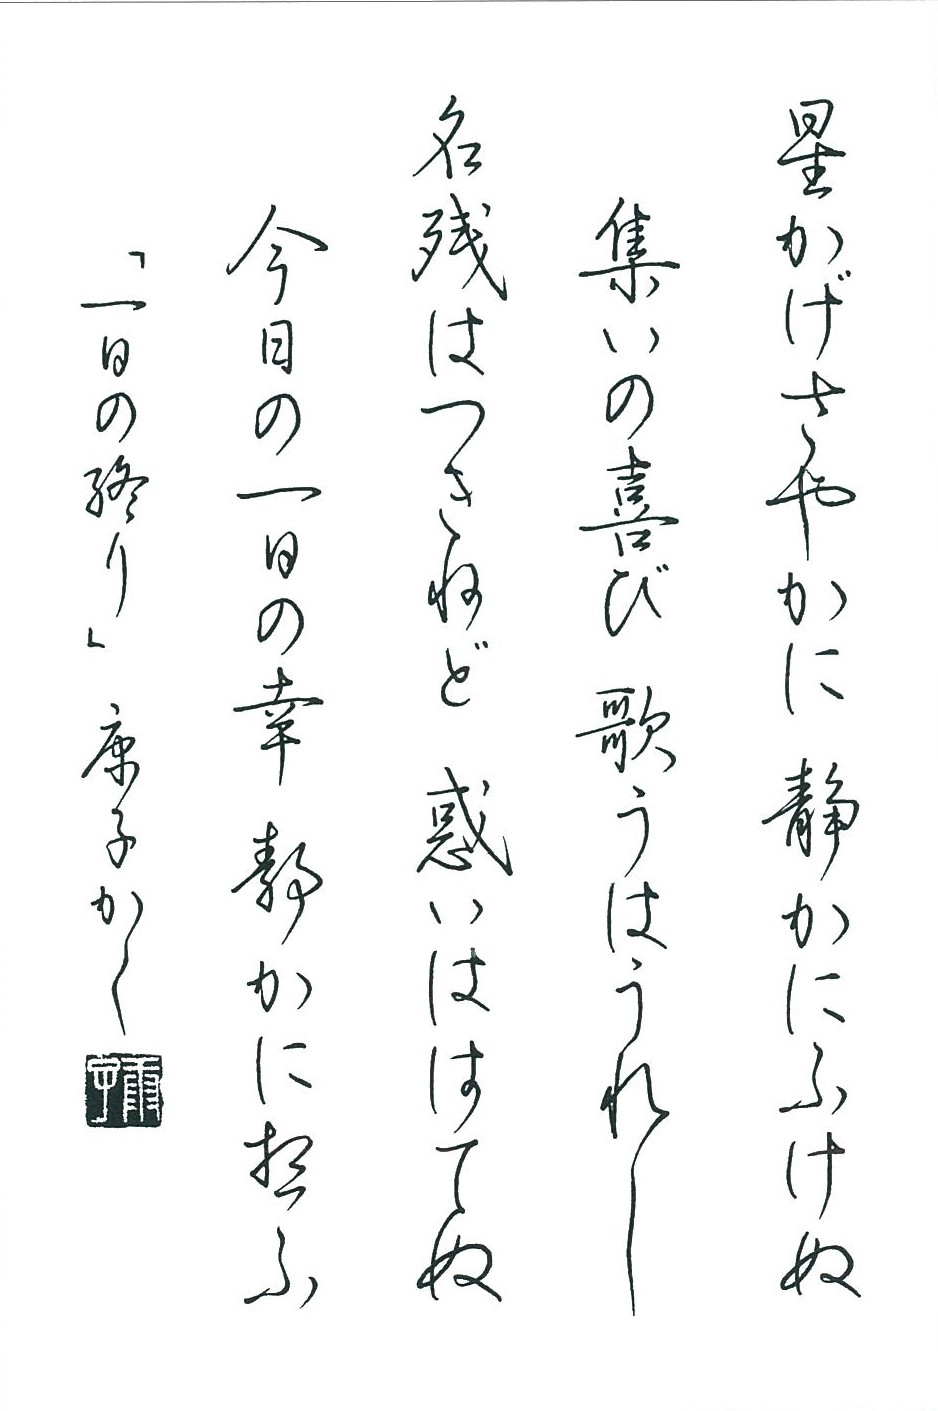 星かげさやかに 静かにふけぬ
集いの喜び 歌うはうれし
名残はつきねど 惑いははてぬ
今日の一日の幸 静かに想ふ
「一日の終り」 康子かく